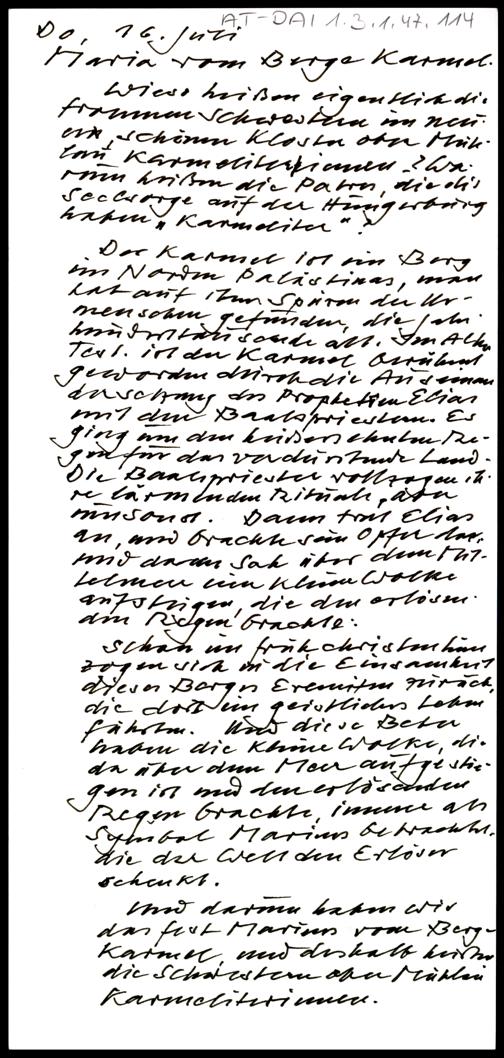 AT-DAI 1.3.1.47.114
Do, 16. Juli
Maria vom Berge Karmel.
Wieso heißen eigentlich die
frommen Schwestern im neu-
en, schönen Kloster ober Müh-
lau „Karmeliterinnen"? Wa-
rum heißen die Patres, die die
Seelsorge auf der Hungerburg
haben „Karmeliter"?
Der Karmel ist ein Berg
im Norden Palästinas, man
hat auf ihm Spuren der Ur-
menschen gefunden, die Jahr-
hunderttausende alt. Im Alten
Test. ist der Karmel berühmt
geworden durch die Auseinan-
dersetzung des Propheten Elias
mit den Baalspriestern. Es
ging um den heißersehnten Re-
gen für das verdurstende Land.
Die Baalspriester vollzogen ih-
re lärmenden Rituale, aber
umsonst. Dann trat Elias
an, und brachte sein Opfer dar,
und dann sah über dem Mit-
telmeer eine kleine Wolke
aufsteigen, die den erlösen-
den Regen brachte.
Schon im frühchristentum
zogen sich in die Einsamkeit
dieses Berges Eremiten zurück,
die dort ein geistliches Leben
führten. Und diese Beter
haben die kleine Wolke, die
da über dem Meer aufgestie-
gen ist und den erlösenden
Regen brachte, immer als
Symbol Mariens betrachtet,
die der Welt den Erlöser
schenkt.
Und darum haben wir
das fest Mariens vom Berge
Karmel, und deshalb heißen
die Schwestern ober Mühlau
Karmeliterinnen.